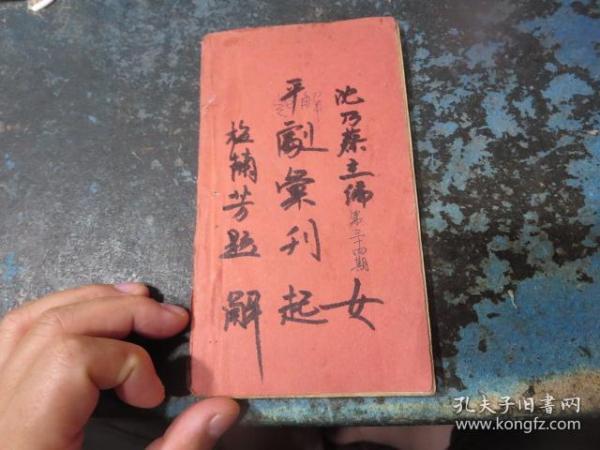 沈乃葵主编 第三十四期
平劇彙刊
梅蘭芳题
女起解
孔夫子旧書网
www.kongfz.com